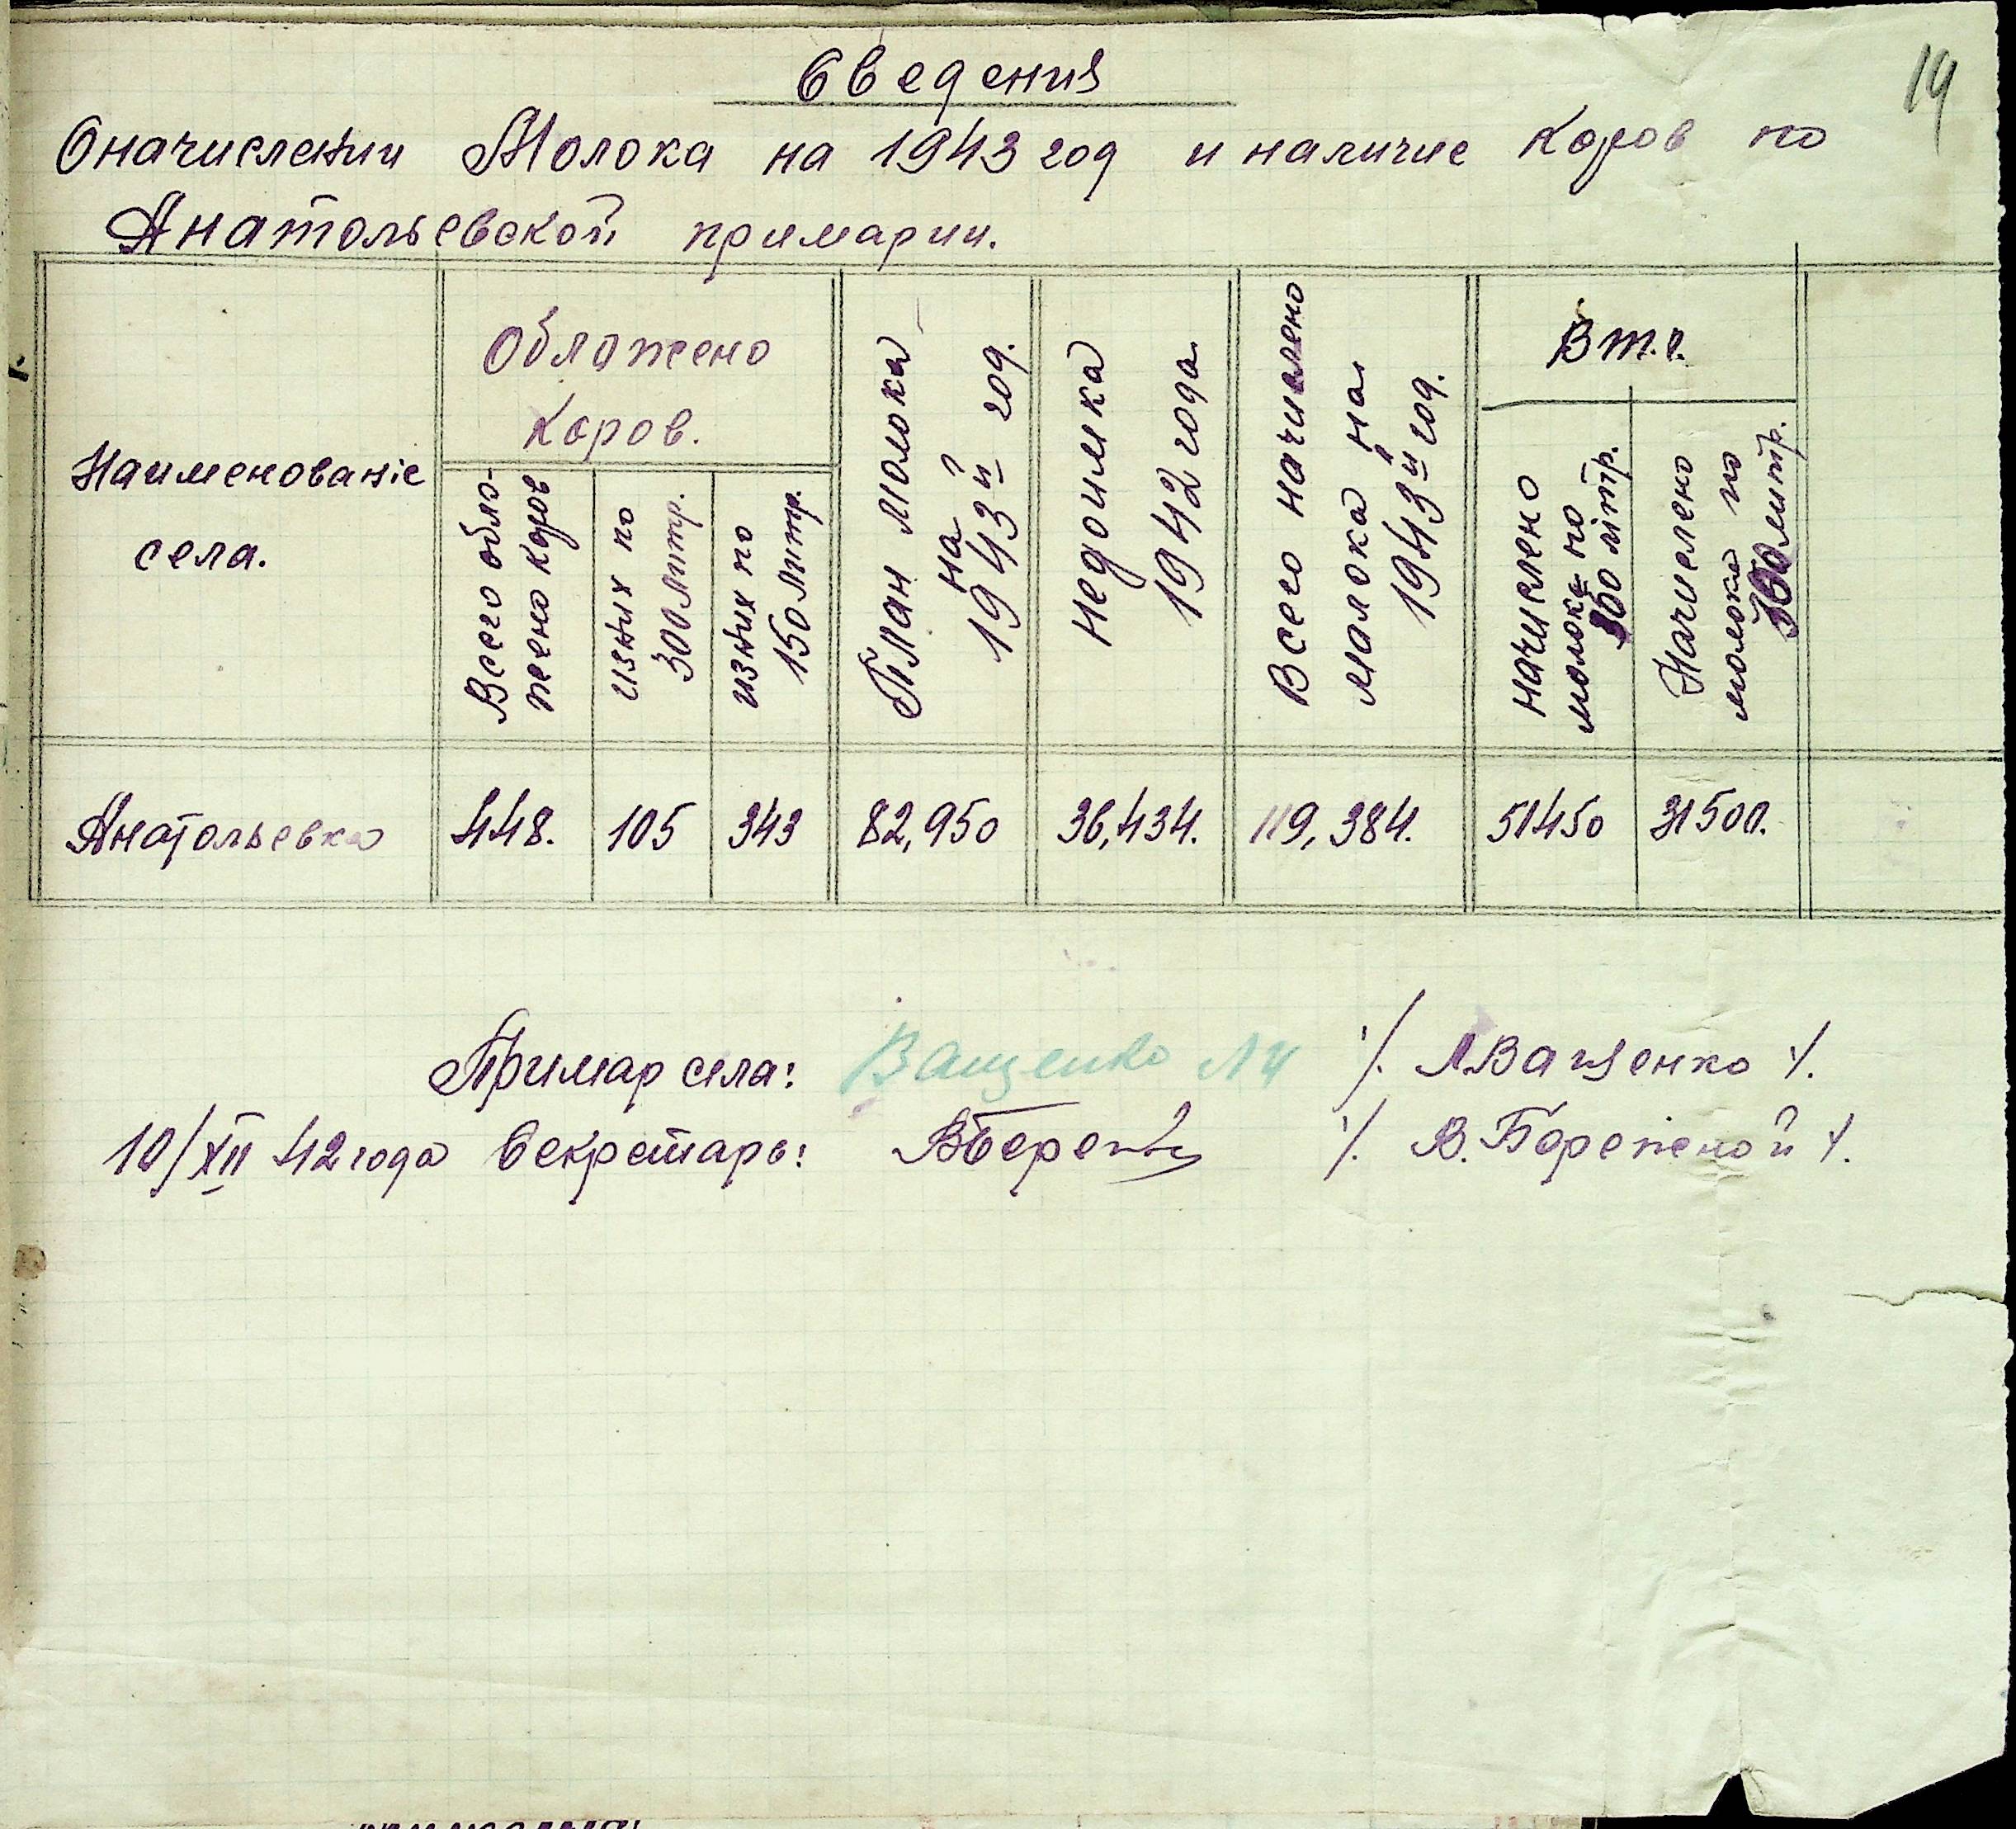 19
Сведения
Оначислении Молока на 1943 год и наличие коров по
Анатольевской примарии.
Наименованіе
села.
Обложено
коров.
Всего обло-
жено коров
изних по
300 литр.
изних по
150 литр.
План молока
на
1943й год.
Недоимка
1942 года.
Всего начислено
малока на
1943й год.
В т.ч.
начислено
молока по
літр.
Начислено
молока по
300 литр.
Анатольевка 448. 105 343 82,950 36,434. 119,384. 51450 31500.
Примар села: Ващенко ЛИ /. Л.Ващенко /.
10/XII 42 года Секретарь: /. В. Бережной /.